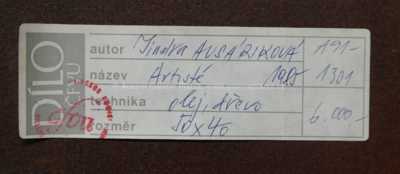 DÍLO ČFVU
autor Jindra HUSÁRIKOVÁ 191-
název Artisté 1985 1301
technika olej, dřevo 6.000-
rozměr 50x40